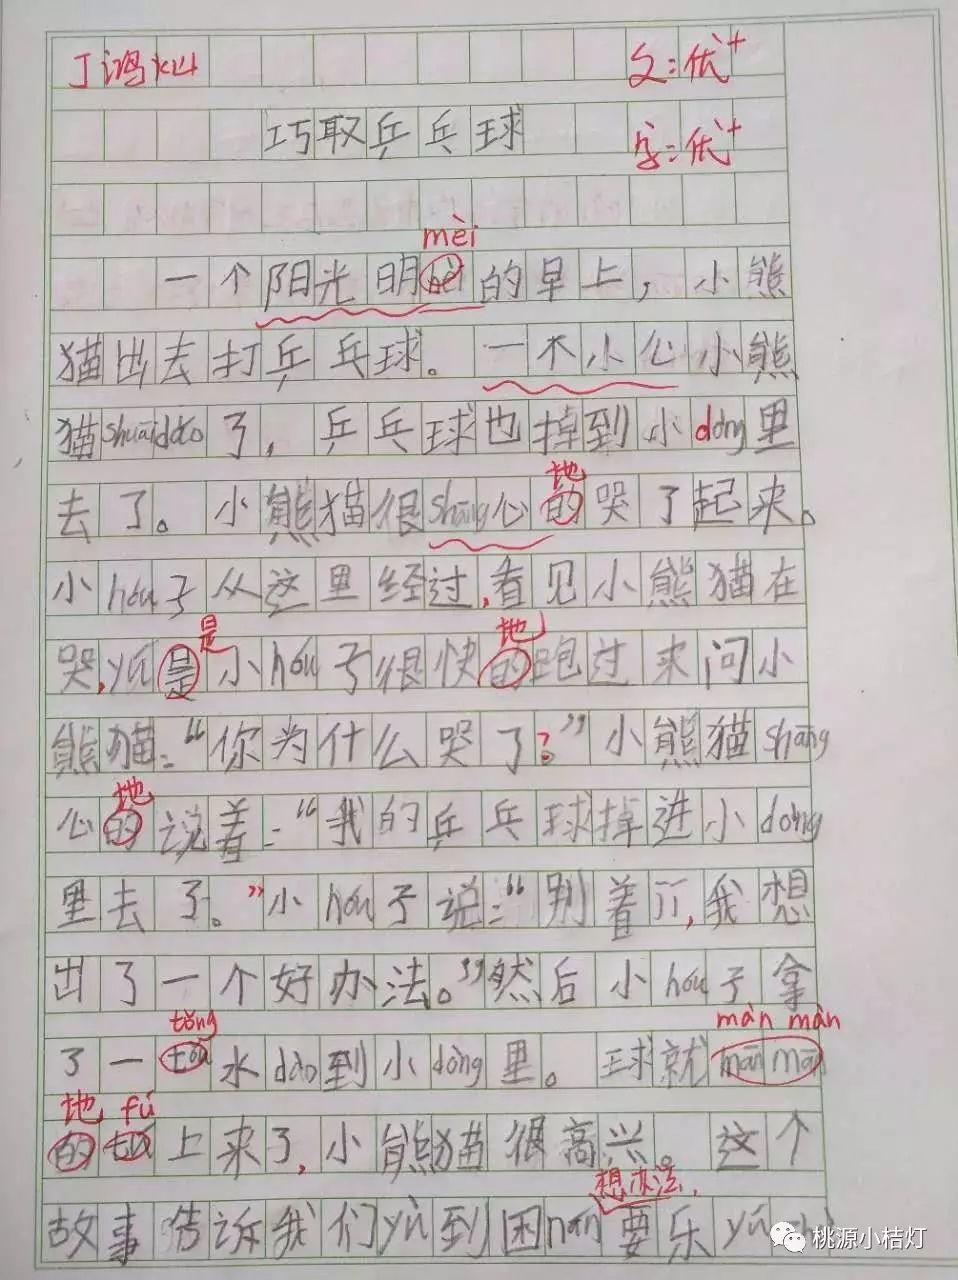 丁鸿 文:优+
巧取乒乓球 字:优+
mèi
一个阳光明的早上,小熊
猫出去打乒乓球。一不小心小熊
猫shuāidǎo了,乒乓球也掉到小dòng里
地
去了。小熊猫很shāng心的哭了起来。
小hóu子从这里经过,看见小熊猫在
是 地
哭,yú是小hóu子很快的跑过来问小
熊猫:“你为什么哭了?”小熊猫shāng
地
心的说着:“我的乒乓球掉进小dòng
里去了。”小hóu子说:“别着,我想
出了一个好办法。”然后小hóu子拿
tǒng màn màn
了一水dào到小dòng里。球就mānmān
地 fú
的上来了,小熊猫很高兴。这个
想办法,
故事告诉我们yù到困nan要乐yú
桃源小桔灯